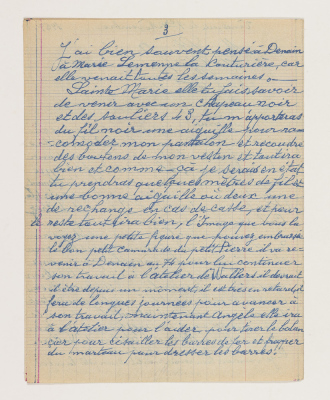 3
J'ai bien souvent pensé à Denain
à Marie Lemonne la Couturière, car
elle venait toutes les semaines.
Sainte Marie elle tu fais savoir
de venir avec un chapeau noir
et des souliers 43, tu m'apporteras
du fil noir une aiguille pour rac
comoder mon pantalon et recoudre
des boutons de mon veston et tout ira
bien et comme ça je serais en état
tu prendras quelques mètres de fil et
une bonne aiguille ou deux une
de rechange en cas de casse, et pour
reste tout ira bien, l'image que vous la
vez une petite figure que pouvez embrasser
le bon petit Camarade du petit Pierre il va re
venir à Denain au 74 pour lui continuer
son travail à l'atelier de Wallers il devrait
d'être depuis un moment, il est très en retard, il
fera de longues journées pour avancer à
son travail, maintenant Angèle elle ira
à l'atelier pour l'aider pour tirer le balan
cier pour cisailler les barres de fer et frapper
du marteau pour dresser les barres !!